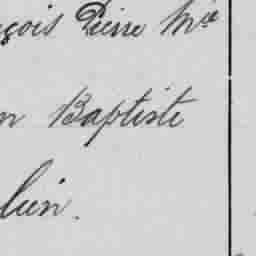 çois Pierre Mie
n Baptiste
lien.